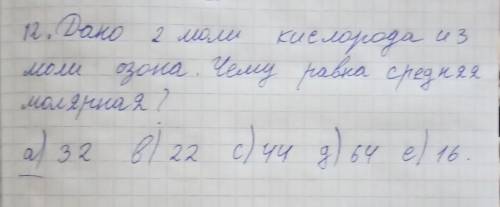 12. Дано 2 моли кислорода и 3
моли озона. Чему равна средняя
молярная?
а) 32 в) 22 с) 44 д) 64 е) 16.